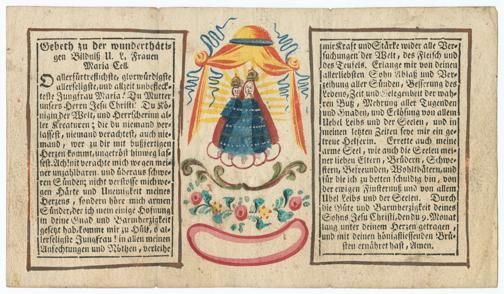 Gebeth zu der wunderthäti-
gen Bildniß U. L. Frauen
Maria Cell.
O allerfürtrefflichste, glorwürdigste
allerseligste, und allzeit unbefleck-
teste Jungfrau Maria! Du Mutter
unsers Herrn Jesu Christi! Du Kö-
nigin der Welt, und Herrscherin al-
ler Kreaturen; die du niemand ver-
lassest, niemand verachtest, auch nie-
mand, wer zu dir mit bußfertigen
Herzen kommt, ungetröst hinweg las-
sest. Ach! nit verachte mich wegen mei-
ner unzahlbaren, und überaus schwe-
ren Sünden; nicht verstosse mich we-
gen Härte und Unreinigkeit meines
Herzens, sondern höre mich armen
Sünder, der ich mein einige Hofnung
in deine Gnad und Barmherzigkeit
gesetzt hab, komme mir zu Hülf, o al-
lerseligste Jungfrau! in allen meinen
Anfechtungen und Nöthen, verleihe
mir Kraft und Stärke wider alle Ver-
suchungen der Welt, des Fleisch und
des Teufels. Erlange mir von deinen
allerliebsten Sohn Ablaß und Ver-
zeihung aller Sünden, Besserung des
Lebens, Zeit und Gelegenheit der wah-
ren Buß, Mehrung aller Tugenden
und Gnaden, und Erlösung von allem
Uebel Leibs und der Seelen, und in
meinen letzten Zeiten seye mir ein ge-
treue Helferin. Errette auch meine
arme Seel, wie auch die Seelen mei-
ner lieben Eltern, Brüdern, Schwe-
stern, Befreunden, Wohlthätern, und
für die ich zu betten schuldig bin, von
der ewigen Finsternuß und von allem
Uibel Leibs und der Seelen. Durch
die Güte und Barmherzigkeit deines
Sohns Jesu Christi, den du 9. Monat
lang unter deinem Herzen getragen,
und mit deinen hönigfliessenden Brü-
sten ernähret hast, Amen.